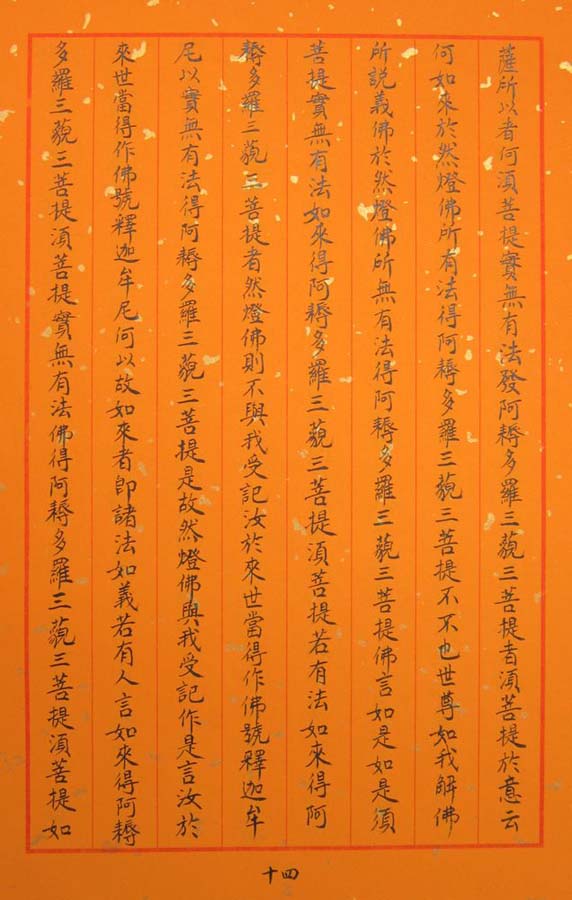 薩所以者何須菩提實無有法發阿耨多羅三藐三菩提者須菩提於意云
何如來於然燈佛所有法得阿耨多羅三藐三菩提不不也世尊如我解佛
所說義佛於然燈佛所無有法得阿耨多羅三藐三菩提佛言如是如是須
菩提實無有法如來得阿耨多羅三藐三菩提須菩提若有法如來得阿
耨多羅三藐三菩提者然燈佛則不與我受記汝於來世當得作佛號釋迦牟
尼以實無有法得阿耨多羅三藐三菩提是故然燈佛與我受記作是言汝於
來世當得作佛號釋迦牟尼何以故如來者即諸法如義若有人言如來得阿耨
多羅三藐三菩提須菩提實無有法佛得阿耨多羅三藐三菩提須菩提如
十四